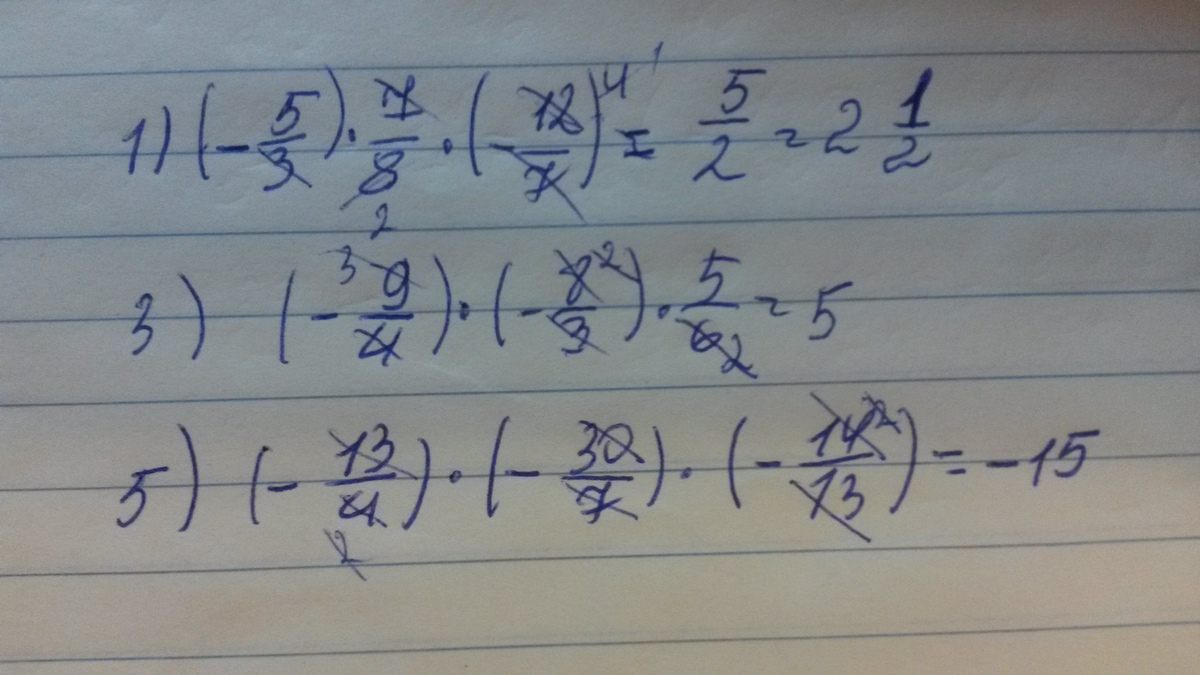 1) (-5/3) · 7/8 · (-12/7) 4 1 = 5/2 = 2 1/2
2
3) (-3 9/4) · (-8 2/3) · 5/6 2 = 5
5) (-13/4) · (-30/7) · (-14 2/13) = -15
2